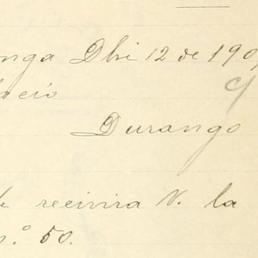 nga Dbi 12 de 190
lacio
Durango
recivira V. la
n.° 50.